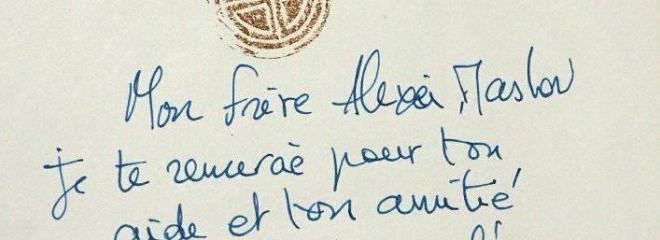 Mon frère Alexei Maslov
je te remercie pour ton
aide et ton amitié